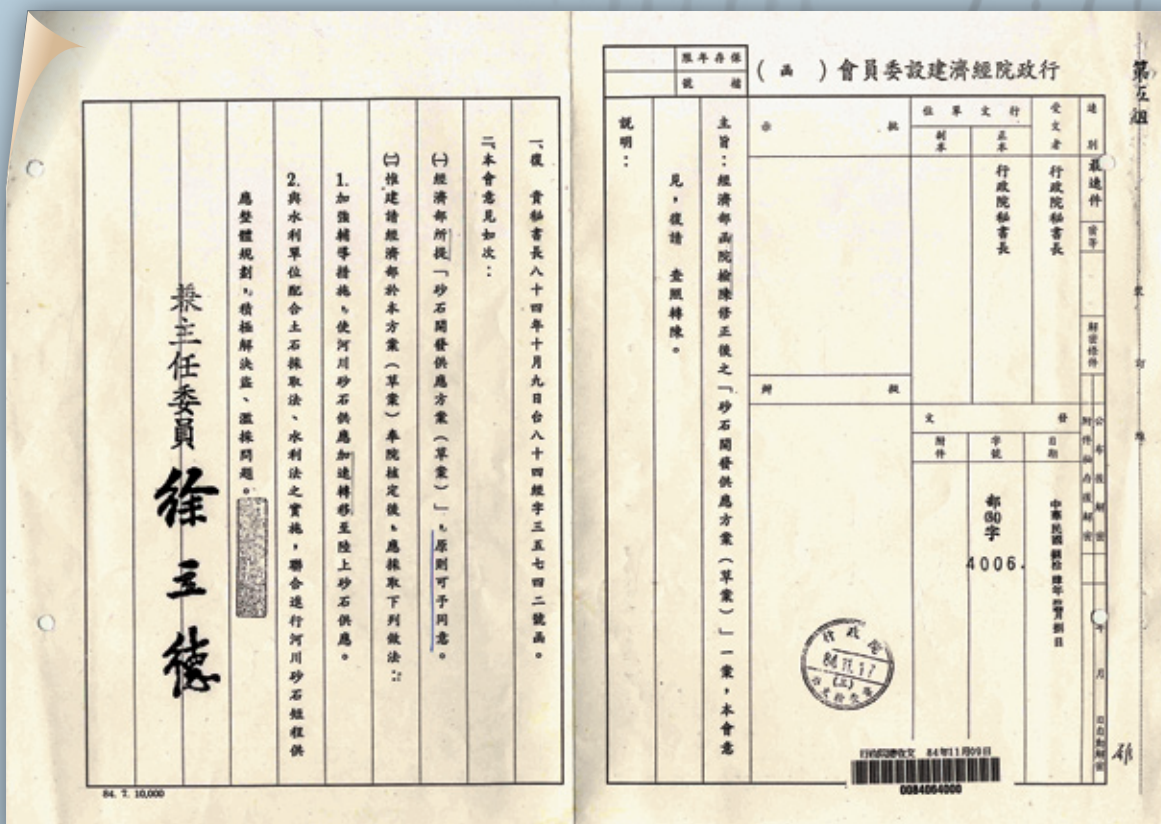 第五組
行政院經濟建設委員會（函）
保存年限
檔號
速別
最速件
密等
解密條件
公布後解密
附件抽存後解密
年 月 日自動解密
受文者
行政院秘書長
行文單位
正本
行政院秘書長
副本
發文
日期
中華民國
字號
4006.
附件
批示
擬辦
主旨：經濟部函院檢陳修正後之「砂石開發供應方案（草案）」一案，本會意
見，復請 查照轉陳。
說明：
一、復 貴秘書長八十四年十月九日台八十四經字三五七四二號函。
二、本會意見如次：
㈠經濟部所提「砂石開發供應方案（草案）」，原則可予同意。
㈡惟建請經濟部於本方案（草案）奉院核定後，應採取下列做法：
1.加強輔導措施，使河川砂石供應加速轉移至陸上砂石供應。
2.與水利單位配合土石採取法、水利法之實施，聯合進行河川砂石短程供
應整體規劃，積極解決盜、濫採問題。
兼主任委員 徐立德
84.11.17
裝
訂
線
84年11月09日
0084064000
84. 7. 10,000